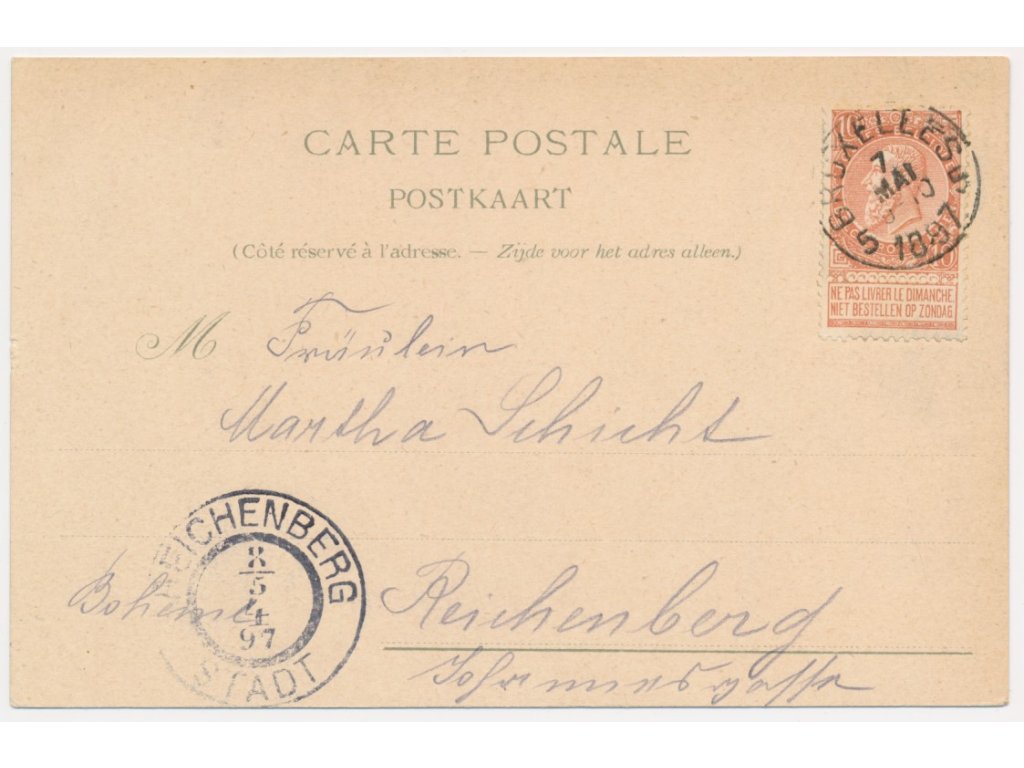 CARTE POSTALE
POSTKAART
(Côté réservé à l'adresse. — Zijde voor het adres alleen.)
10 10
BRUXELLES 5
7
MAI
1897
5
NE PAS LIVRER LE DIMANCHE
NIET BESTELLEN OP ZONDAG
M Fräulein
Martha Schicht
REICHENBERG
8
5
4
97
STADT
Bohême Reichenberg
Johannesgasse